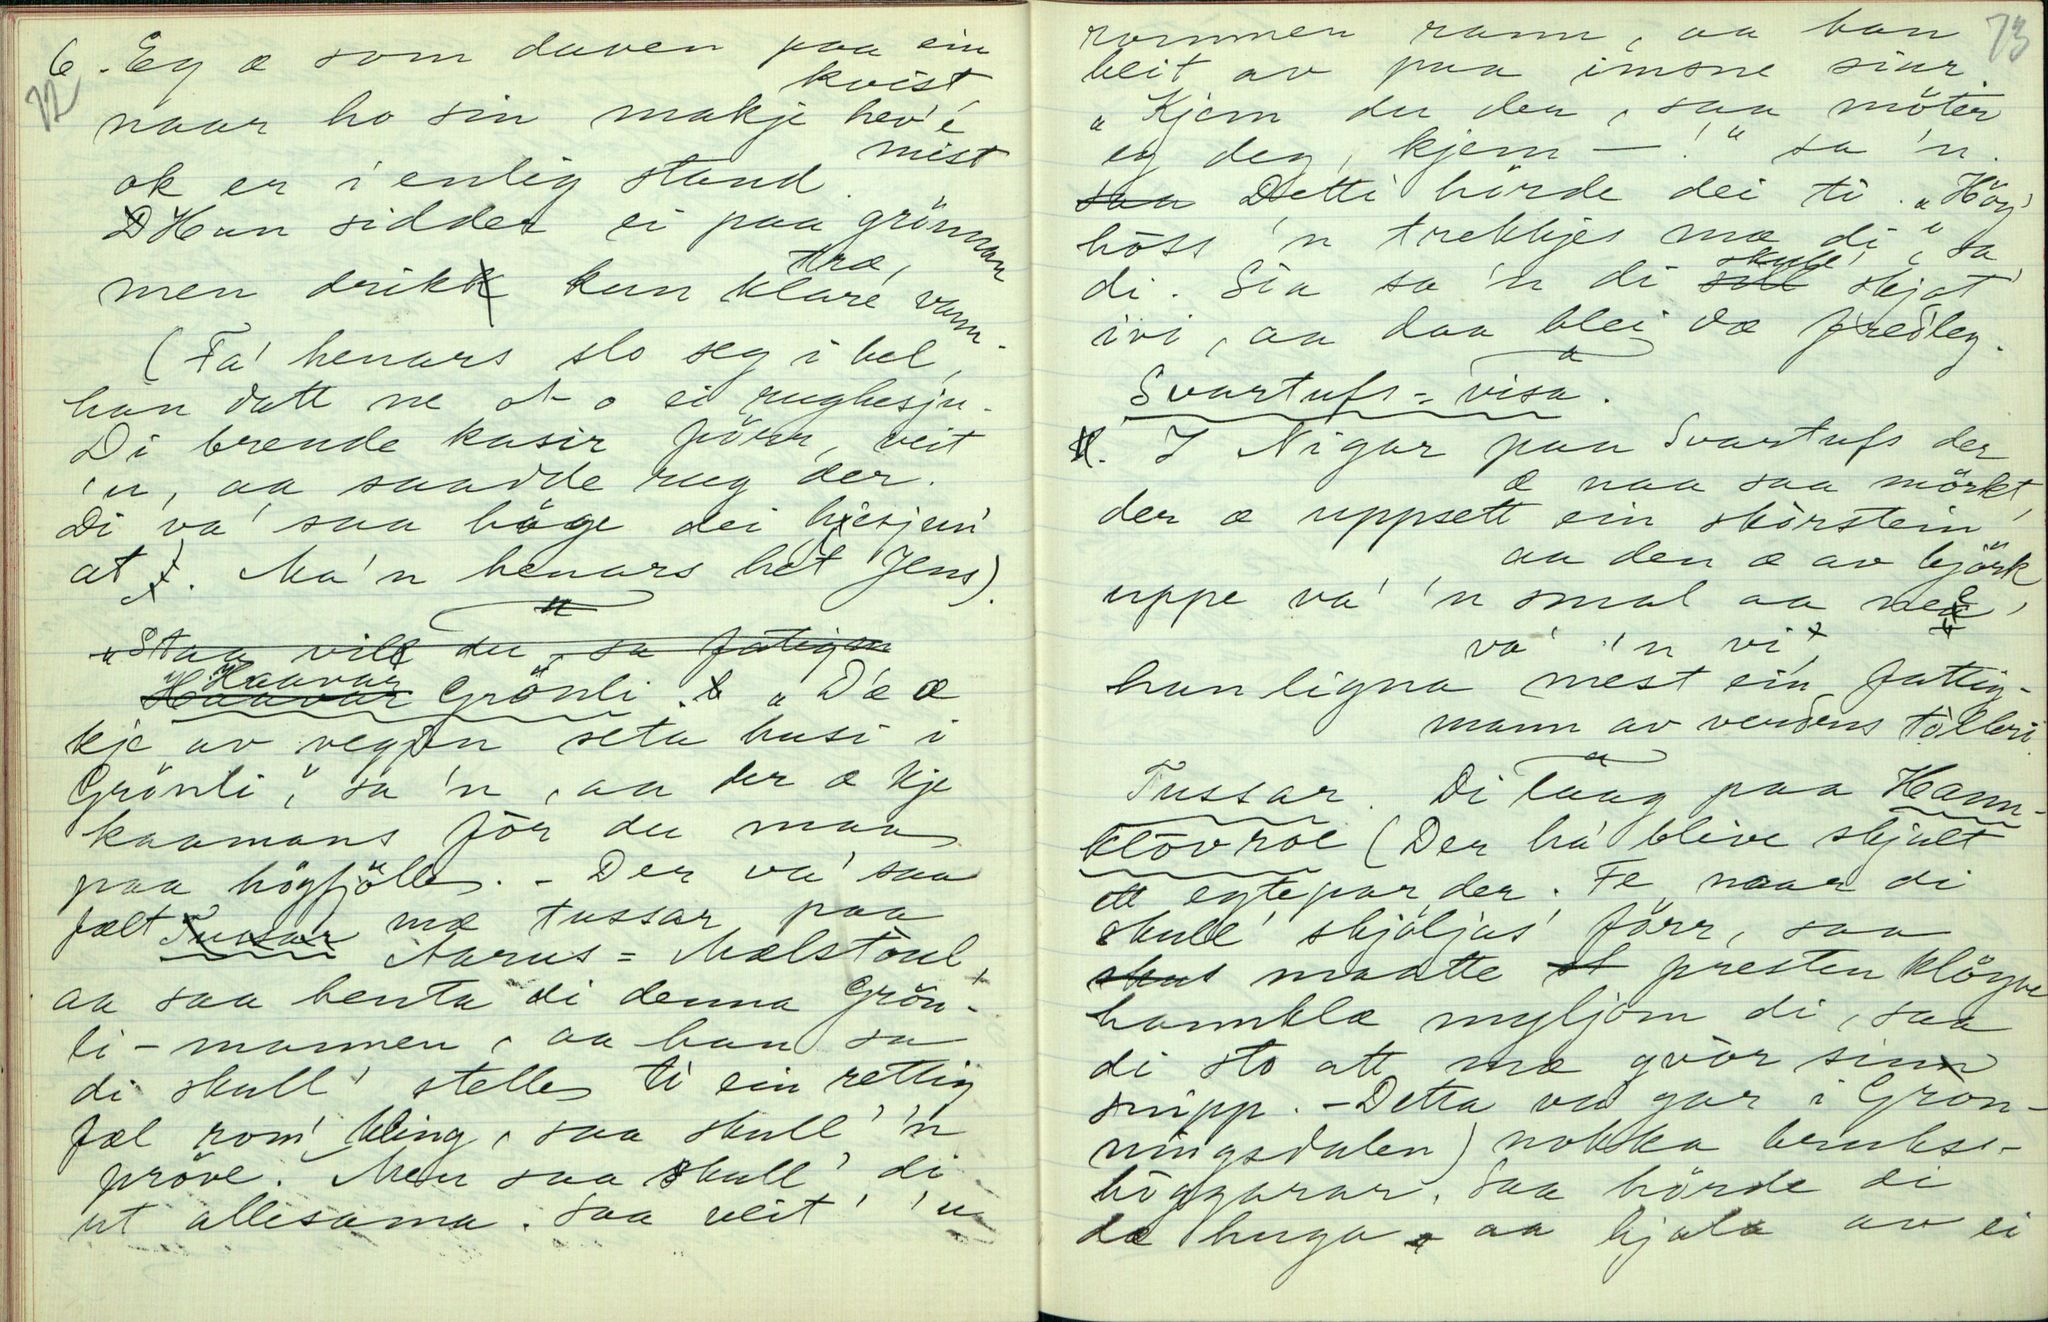 72
6. Eg æ som duven paa ein
kvist
naar ho sin makje hev'e
mist
ok er i enlig stand.
Hun sidder ei paa grönnan
træ,
men drikk kun klare vann.
(Fa' henars slo seg i hel,
han datt ne ei rughesju.
Di brende kasir förr, veit
'n, aa saadde rug der.
Di va' saa höge dei hesjun'
at. Ma'n henars het Jens).
"Staa vill du, sa fatigm
Haavar Grönli. "D'æ æ
kje av vegen seta husi i
Grönli," sa 'n, aa der æ kje
kaamans för du maa
paa högfjölle. - Der va' saa
fælt mæ tussar paa
Aarus-Mælstöul
aa saa henta di denna Grön-
li-mannen, aa han sa
di skull' stelle ti ein rettig
fæl rom'kling, saa skull' 'n
pröve. Men saa skull' di
ut allesama. Saa veit' 'n
73
rommen rann, aa han
beit av paa imsne siur.
"Kjem du der, saa möter
eg deg, kjem —!" sa 'n.
saa Detti hörde dei ti. "Hög'
höss 'n trekkjes mæ di," sa
di. Sia sa 'n di skulle skjot'
ivi, aa daa blei dæ fredleg.
Svartufs-visa.
1. I Nigar paa Svartufs der
æ naa saa mörkt,
der æ uppsett ein skörstein
aa den æ av björk
uppe va' 'n smal aa ne
va' 'n vi,
han ligna mest ein fattig-
mann av verdens tölleri.
Tussar. Di laag paa Hann-
klövroe (Der ha' blive skjult
ett egtepar der. Fe naar di
skull' skjöljas förr, saa
maatte presten klögve
hannklæ myljom di, saa
di sto att mæ qvör sinn
snipp. - Detta va gar i Grön-
ningsdalen) nokka bruks-
höggarar. Saa hörde di
dæ huga aa hjala av ei